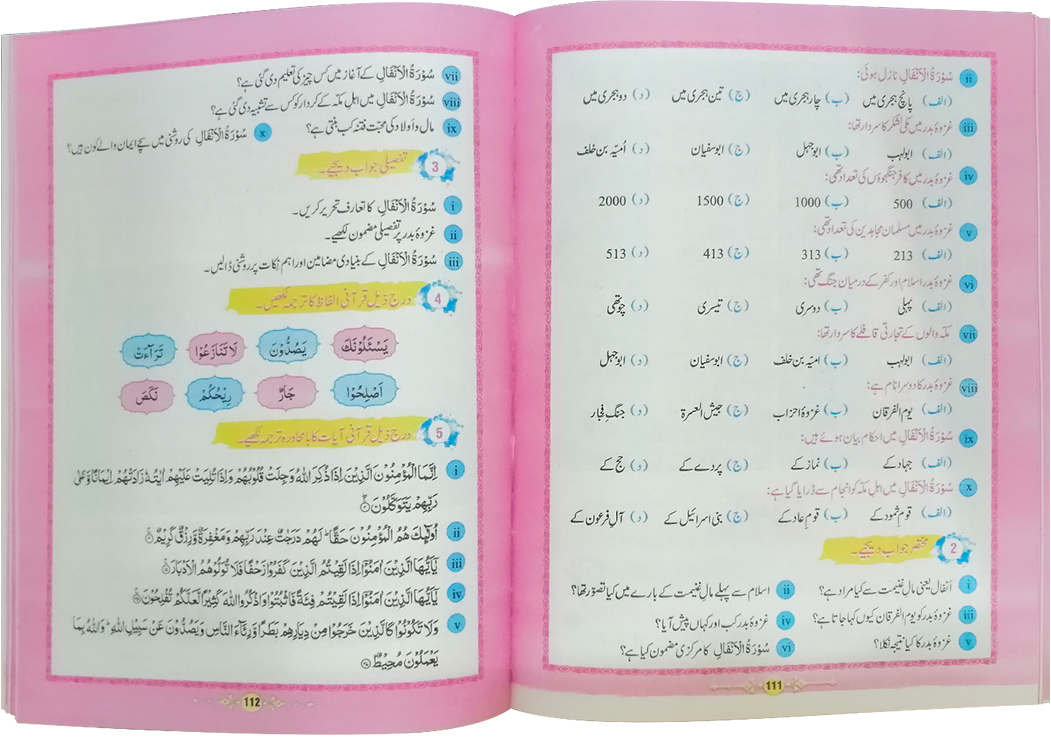 ii سُوْرَۃُ الْاَنْفَالِ نازل ہوئی:
(الف) پانچ ہجری میں (ب) چار ہجری میں (ج) تین ہجری میں (د) دو ہجری میں
iii غزوۂ بدر میں مکی لشکر کا سردار تھا:
(الف) ابولہب (ب) ابوجہل (ج) ابوسفیان (د) اُمیّہ بن خلف
iv غزوۂ بدر میں کافر جنگجوؤں کی تعداد تھی:
(الف) 500 (ب) 1000 (ج) 1500 (د) 2000
v غزوۂ بدر میں مسلمان مجاہدین کی تعداد تھی:
(الف) 213 (ب) 313 (ج) 413 (د) 513
vi غزوۂ بدر اسلام اور کفر کے درمیان جنگ تھی:
(الف) پہلی (ب) دوسری (ج) تیسری (د) چوتھی
vii مکہ والوں کے تجارتی قافلے کا سردار تھا:
(الف) ابولہب (ب) امیّہ بن خلف (ج) ابوسفیان (د) ابوجہل
viii غزوۂ بدر کا دوسرا نام ہے:
(الف) یوم الفرقان (ب) غزوۂ احزاب (ج) جیش العسرۃ (د) جنگِ فجار
ix سُوْرَۃُ الْاَنْفَالِ میں احکام بیان ہوئے ہیں:
(الف) جہاد کے (ب) نماز کے (ج) پردے کے (د) حج کے
x سُوْرَۃُ الْاَنْفَالِ میں اہلِ مکّہ کو انجام سے ڈرایا گیا ہے:
(الف) قومِ ثمود کے (ب) قومِ عاد کے (ج) بنی اسرائیل کے (د) آلِ فرعون کے
2 مختصر جواب دیجیے۔
i انفال یعنی مالِ غنیمت سے کیا مراد ہے؟ ii اسلام سے پہلے مالِ غنیمت کے بارے میں کیا تصوّر تھا؟
iii غزوۂ بدر کو یوم الفرقان کیوں کہا جاتا ہے؟ iv غزوۂ بدر کب اور کہاں پیش آیا؟
v غزوۂ بدر کا کیا نتیجہ نکلا؟ vi سُوْرَۃُ الْاَنْفَالِ کا مرکزی مضمون کیا ہے؟
111
vii سُوْرَۃُ الْاَنْفَالِ کے آغاز میں کس چیز کی تعلیم دی گئی ہے؟
viii سُوْرَۃُ الْاَنْفَالِ میں اہلِ مکّہ کے کردار کو کس سے تشبیہ دی گئی ہے؟
ix مال و اولاد کی محبّت فتنہ کب بنتی ہے؟ x سُوْرَۃُ الْاَنْفَالِ کی روشنی میں سچے ایمان والے کون ہیں؟
3 تفصیلی جواب دیجیے۔
i سُوْرَۃُ الْاَنْفَالِ کا تعارف تحریر کریں۔
ii غزوۂ بدر پر تفصیلی مضمون لکھیے۔
iii سُوْرَۃُ الْاَنْفَالِ کے بنیادی مضامین اور اہم نکات پر روشنی ڈالیں۔
4 درج ذیل قرآنی الفاظ کا ترجمہ لکھیں۔
يَسْـَٔلُوْنَكَ يَصُدُّوْنَ لَا تَنَازَعُوْا تَرَآءَتْ
اَصْلِحُوْا جَارٌ رِيْحُكُمْ نَكَصَ
5 درج ذیل قرآنی آیات کا بامحاورہ ترجمہ لکھیے۔
i اِنَّمَا الْمُؤْمِنُوْنَ الَّذِيْنَ اِذَا ذُكِرَ اللّٰهُ وَجِلَتْ قُلُوْبُهُمْ وَاِذَا تُلِيَتْ عَلَيْهِمْ اٰيٰتُهٗ زَادَتْهُمْ اِيْمَانًا وَّعَلٰى
رَبِّهِمْ يَتَوَكَّلُوْنَ
ii اُولٰٓئِكَ هُمُ الْمُؤْمِنُوْنَ حَقًّا ؕ لَهُمْ دَرَجٰتٌ عِنْدَ رَبِّهِمْ وَمَغْفِرَةٌ وَّرِزْقٌ كَرِيْمٌ
iii يٰۤاَيُّهَا الَّذِيْنَ اٰمَنُوْۤا اِذَا لَقِيْتُمُ الَّذِيْنَ كَفَرُوْا زَحْفًا فَلَا تُوَلُّوْهُمُ الْاَدْبَارَ
iv يٰۤاَيُّهَا الَّذِيْنَ اٰمَنُوْۤا اِذَا لَقِيْتُمْ فِئَةً فَاثْبُتُوْا وَاذْكُرُوا اللّٰهَ كَثِيْرًا لَّعَلَّكُمْ تُفْلِحُوْنَ
v وَلَا تَكُوْنُوْا كَالَّذِيْنَ خَرَجُوْا مِنْ دِيَارِهِمْ بَطَرًا وَّرِئَآءَ النَّاسِ وَيَصُدُّوْنَ عَنْ سَبِيْلِ اللّٰهِ ؕ وَاللّٰهُ بِمَا
يَعْمَلُوْنَ مُحِيْطٌ
112